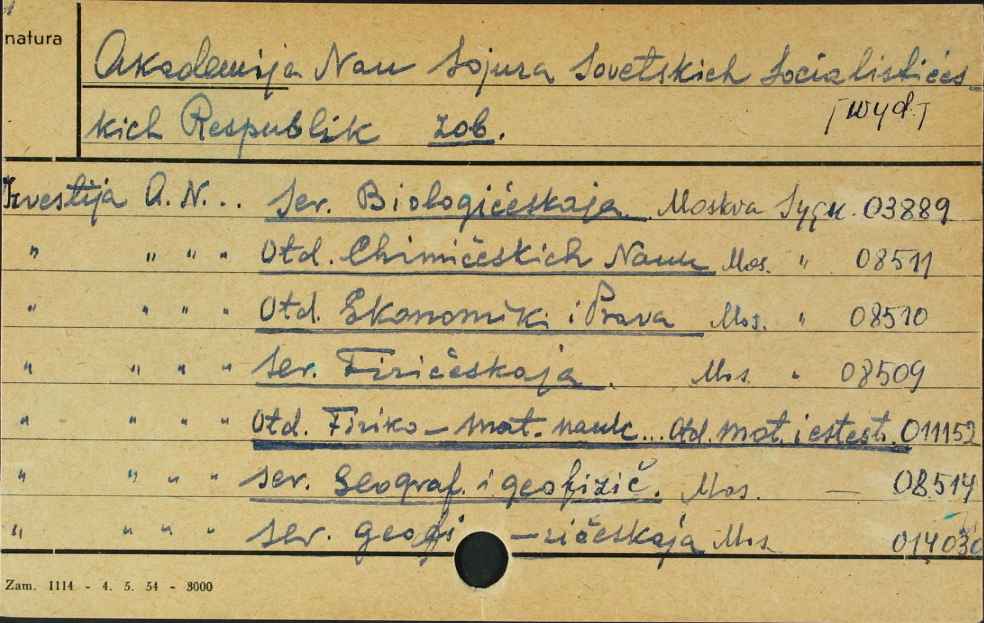 natura
Akademija Nau Sojuza Sovetskich Socialistićes-
kich Respublik zob. [wyd.]
Izvestija A. N... Ser. Biologičeskaja. Moskva Sygn. 03889
" " " " Otd. Chimičeskich Nauk Mos. " 08511
" " " " Otd. Ekonomiki i Prava Mos. " 08510
" " " " Ser. Fizičeskaja. Mos. " 08509
" " " " Otd. Fiziko-mat. nauk... Otd. mat. i estest. 011152
" " " " Ser. Geograf. i geofizič. Mos. — 08514
" " " " Ser. geofi -zičeskaja Mos 014030
Zam. 1114 - 4. 5. 54 - 3000